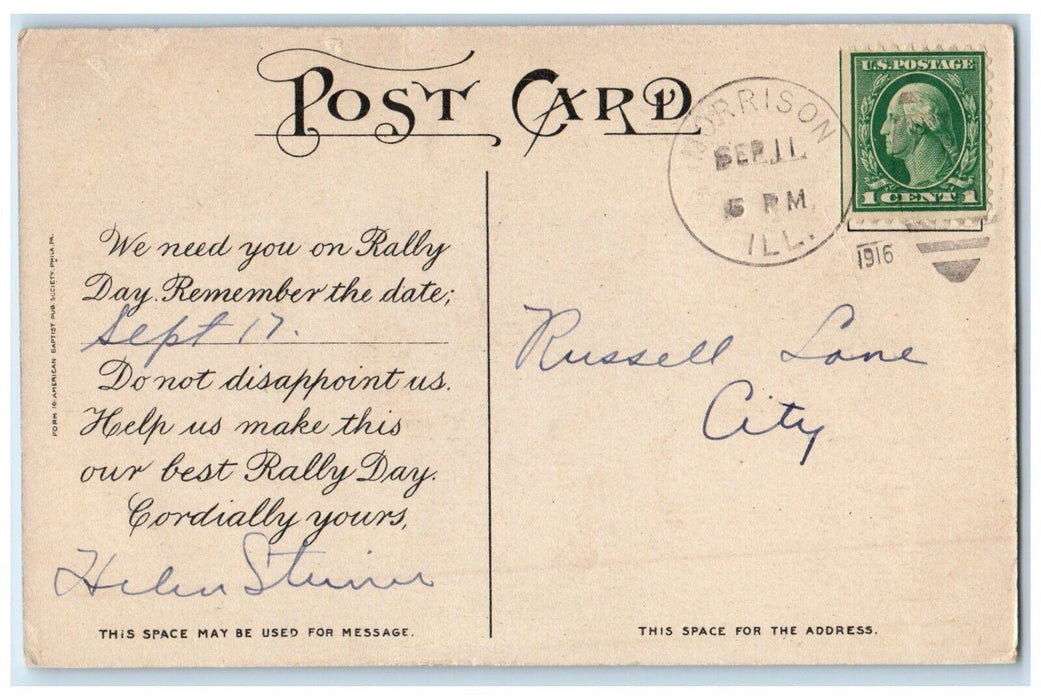 POST CARD
U.S. POSTAGE
1 CENT 1
MORRISON
SEP 11
5 PM
ILL.
1916
We need you on Rally
Day. Remember the date;
Sept 17.
Do not disappoint us.
Help us make this
our best Rally Day.
Cordially yours,
Helen
THIS SPACE MAY BE USED FOR MESSAGE.
FORM 16-AMERICAN BAPTIST PUB. SOCIETY, PHILA. PA.
Russell Lane
City
THIS SPACE FOR THE ADDRESS.